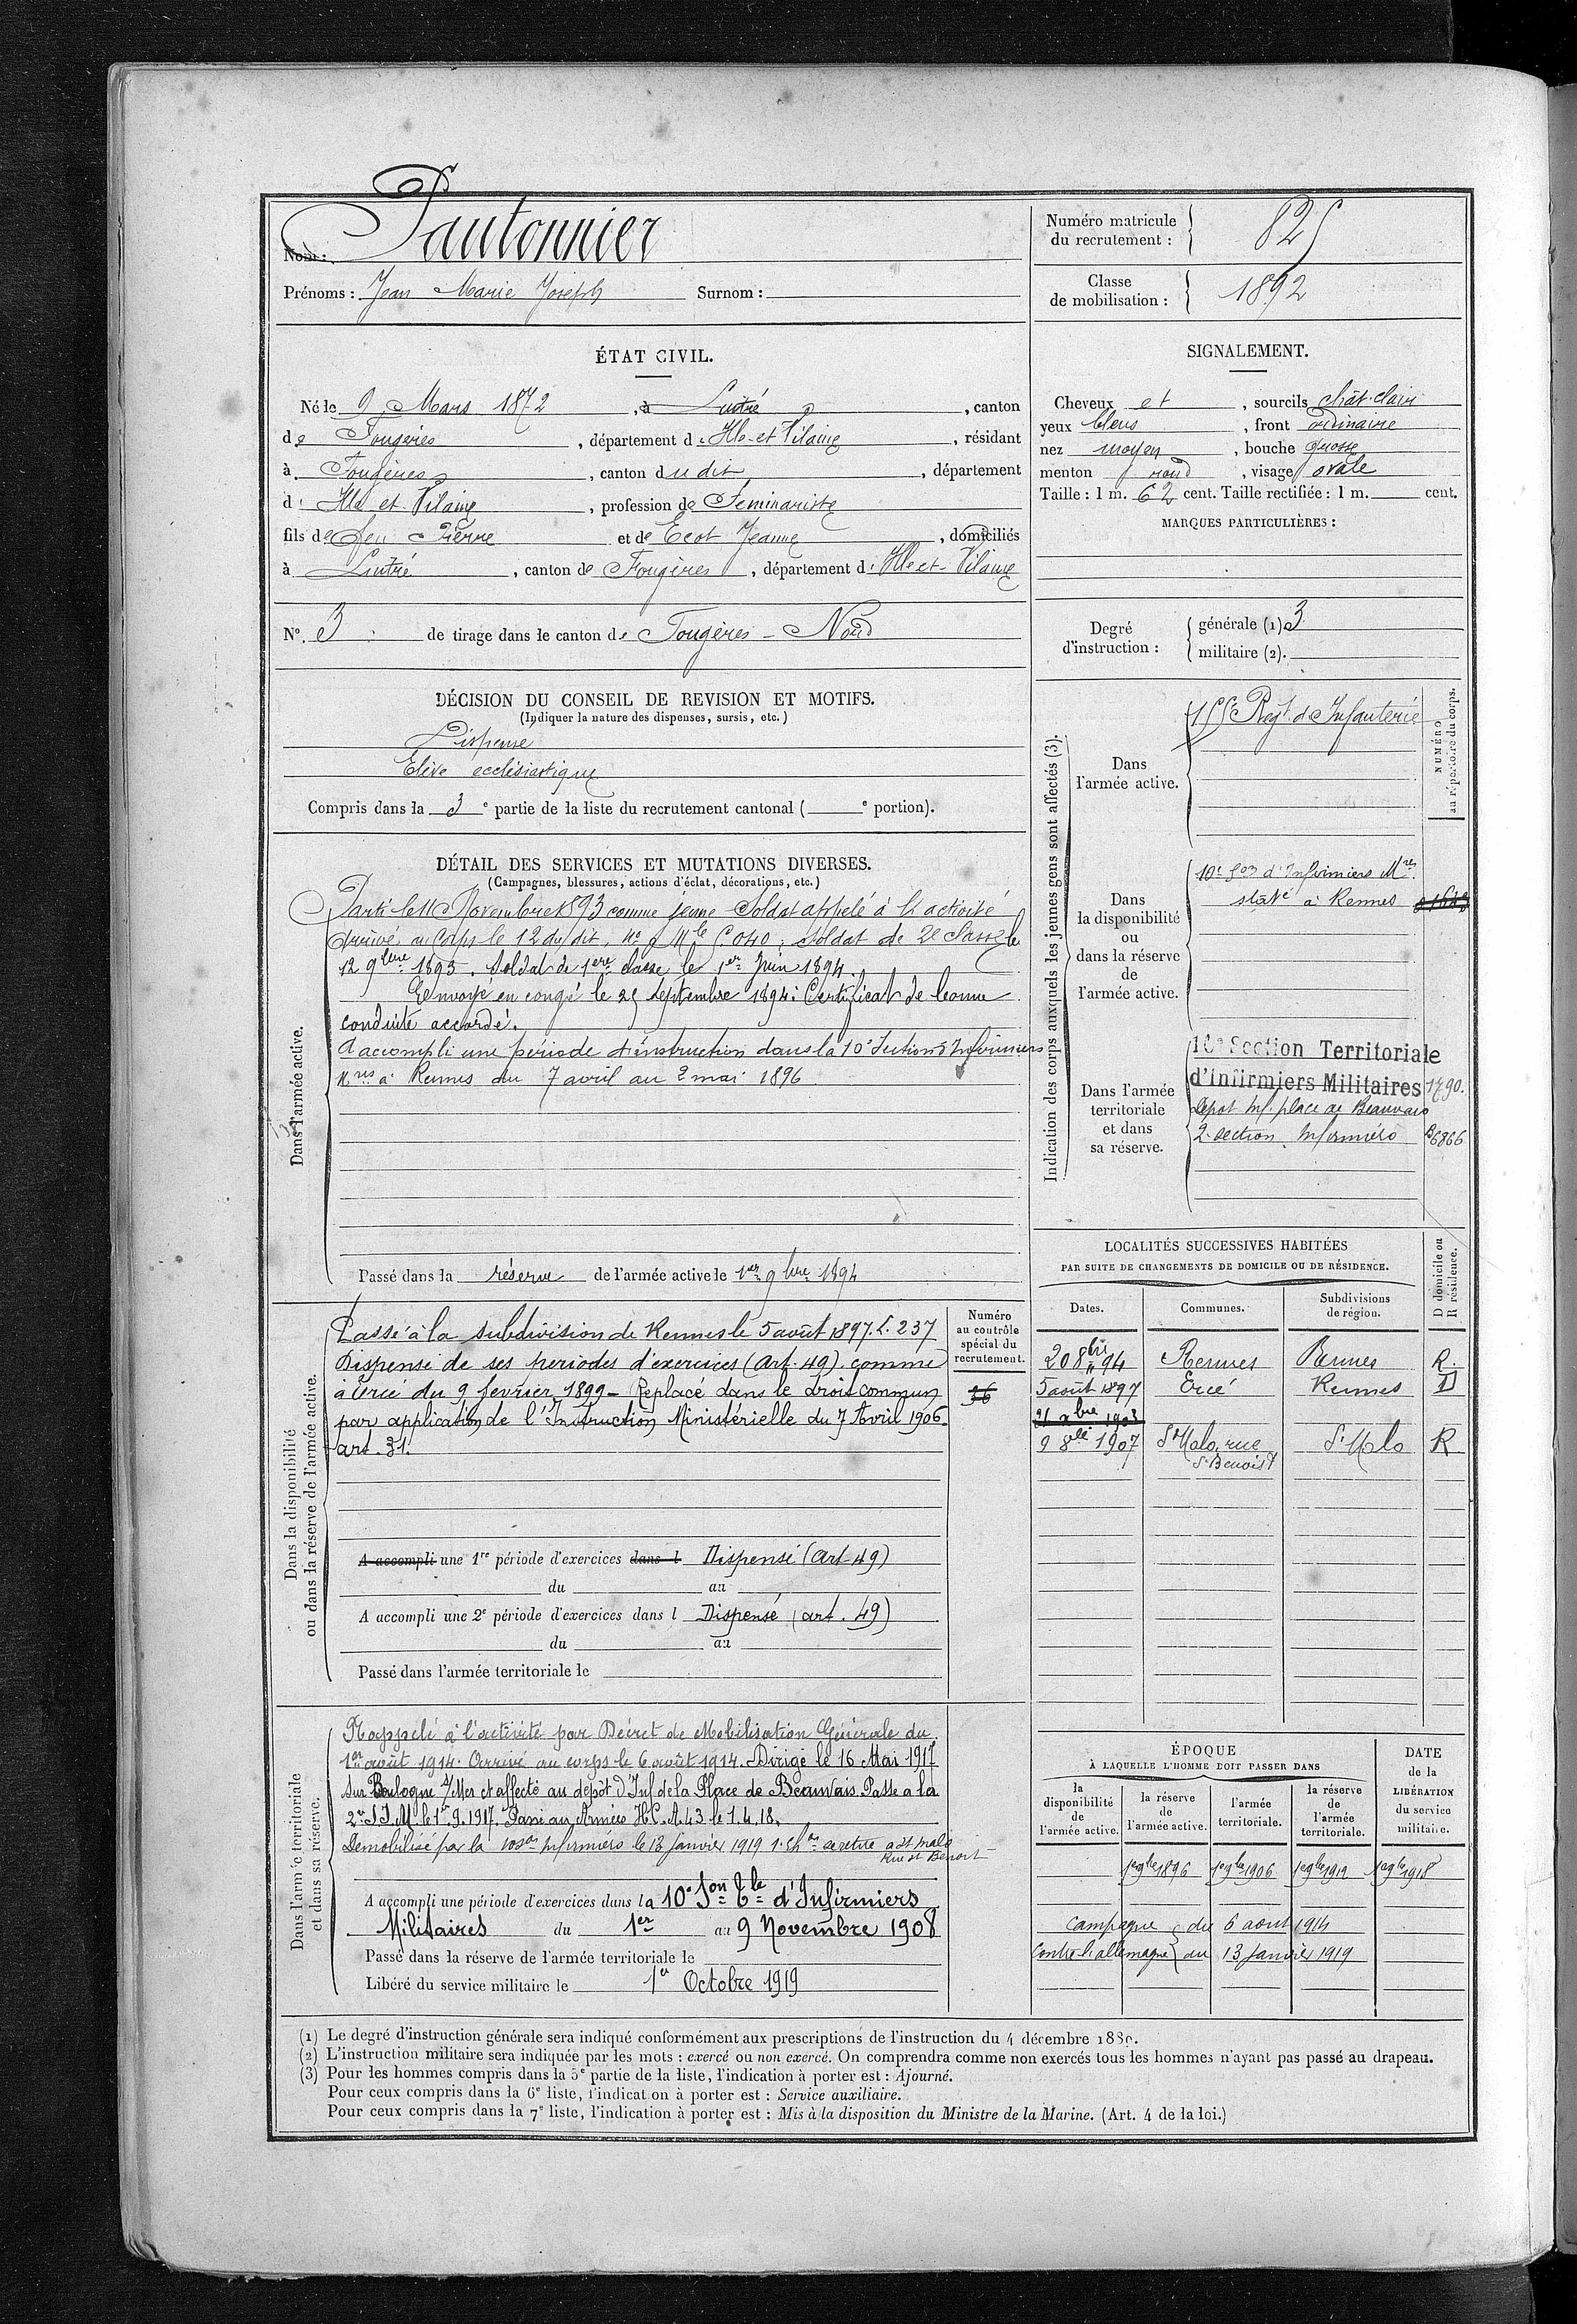 Nom : Pautonnier
Prénoms : Jean Marie Joseph Surnom :
Numéro matricule du recrutement : 825
Classe de mobilisation : 1892
ÉTAT CIVIL.
Né le 9 Mars 1872, à Luitré, canton
de Fougères, département d'Ille-et-Vilaine, résidant
à Fougères, canton dudit, département
d'Ille et Vilaine, profession de Séminariste
fils de feu Pierre et de Ecot Jeanne, domiciliés
à Luitré, canton de Fougères, département d'Ille et Vilaine
N°. 3 de tirage dans le canton de Fougères - Nord
SIGNALEMENT.
Cheveux et, sourcils chât. clair
yeux bleus, front ordinaire
nez moyen, bouche grosse
menton rond, visage ovale
Taille : 1 m. 62 cent. Taille rectifiée : 1 m. cent.
MARQUES PARTICULIÈRES :
Degré d'instruction :
générale (1) 3
militaire (2).
DÉCISION DU CONSEIL DE REVISION ET MOTIFS.
(Indiquer la nature des dispenses, sursis, etc.)
Dispensé
Elève ecclésiastique
Compris dans la 3e partie de la liste du recrutement cantonal (e portion).
DÉTAIL DES SERVICES ET MUTATIONS DIVERSES.
(Campagnes, blessures, actions d'éclat, décorations, etc.)
Dans l'armée active.
Parti le 11 Novembre 1893 comme jeune Soldat appelé à l'activité
Arrivé au Corps le 12 du dit, no Mle 6040; Soldat de 2e Classe le
12 9bre 1893. Soldat de 1ère classe le 1er Juin 1894.
Envoyé en congé le 25 septembre 1894: Certificat de bonne
conduite accordé.
A accompli une période d'instruction dans la 10e Section d'Infirmiers
Mres à Rennes du 7 avril au 2 mai 1896
Passé dans la réserve de l'armée active le 1er 9bre 1894
Indication des corps auxquels les jeunes gens sont affectés (3).
NUMÉRO au répertoire du corps.
Dans l'armée active.
Régt d'Infanterie
Dans la disponibilité ou dans la réserve de l'armée active.
10e Son d'Infirmiers Mres
staté à Rennes
Dans l'armée territoriale et dans sa réserve.
10e Section Territoriale
d'Infirmiers Militaires 1790.
Depot Inf. place de Beauvais
2e section Infirmiers 6866
LOCALITÉS SUCCESSIVES HABITÉES
PAR SUITE DE CHANGEMENTS DE DOMICILE OU DE RÉSIDENCE.
Dates. Communes. Subdivisions de région. D domicile ou R résidence.
20 8bre 94 Rennes Rennes R.
5 août 1897 Ercé Rennes D
21 9bre 1903
9 8bre 1907 St Malo, rue St Benoist St Malo R
Dans la disponibilité ou dans la réserve de l'armée active.
Numéro au contrôle spécial du recrutement.
36
Passé à la subdivision de Rennes le 5 août 1897. L. 237
Dispensé de ses périodes d'exercices (Art. 49) comme
à Ercé du 9 fevrier 1899 - Replacé dans le droit commun
par application de l'Instruction Ministérielle du 7 Avril 1906.
art. 31.
A accompli une 1re période d'exercices dans l Dispensé (Art. 49)
du au
A accompli une 2e période d'exercices dans l Dispensé (art. 49)
du au
Passé dans l'armée territoriale le
Dans l'armée territoriale et dans sa réserve.
Rappelé à l'activité par Décret de Mobilisation Générale du
1er août 1914. Arrivé au corps le 6 août 1914. Dirigé le 16 Mai 1917
sur Boulogne s/Mer et affecté au dépôt d'Inf de la Place de Beauvais. Passé à la
2e S.I.M. le 1er.9.1917. Passé aux Armées H.C.A. 43 le 1.4.18.
Démobilisé par la 10e son infirmiers le 13 janvier 1919 se retire à St Malo
Rue St Benoist
A accompli une période d'exercices dans la 10e Son Tle d'Infirmiers
Militaires du 1er au 9 Novembre 1908
Passé dans la réserve de l'armée territoriale le
Libéré du service militaire le 1er Octobre 1919
ÉPOQUE
À LAQUELLE L'HOMME DOIT PASSER DANS
la disponibilité de l'armée active. la réserve de l'armée active. l'armée territoriale. la réserve de l'armée territoriale.
DATE de la LIBÉRATION du service militaire.
1er 9bre 1896 1er 9bre 1906 1er 9bre 1912 1er 9bre 1918
campagne du 6 aout 1914
contre l'allemagne au 13 janvier 1919
(1) Le degré d'instruction générale sera indiqué conformément aux prescriptions de l'instruction du 4 décembre 1889.
(2) L'instruction militaire sera indiquée par les mots : exercé ou non exercé. On comprendra comme non exercés tous les hommes n'ayant pas passé au drapeau.
(3) Pour les hommes compris dans la 5e partie de la liste, l'indication à porter est : Ajourné.
Pour ceux compris dans la 6e liste, l'indication à porter est : Service auxiliaire.
Pour ceux compris dans la 7e liste, l'indication à porter est : Mis à la disposition du Ministre de la Marine. (Art. 4 de la loi.)